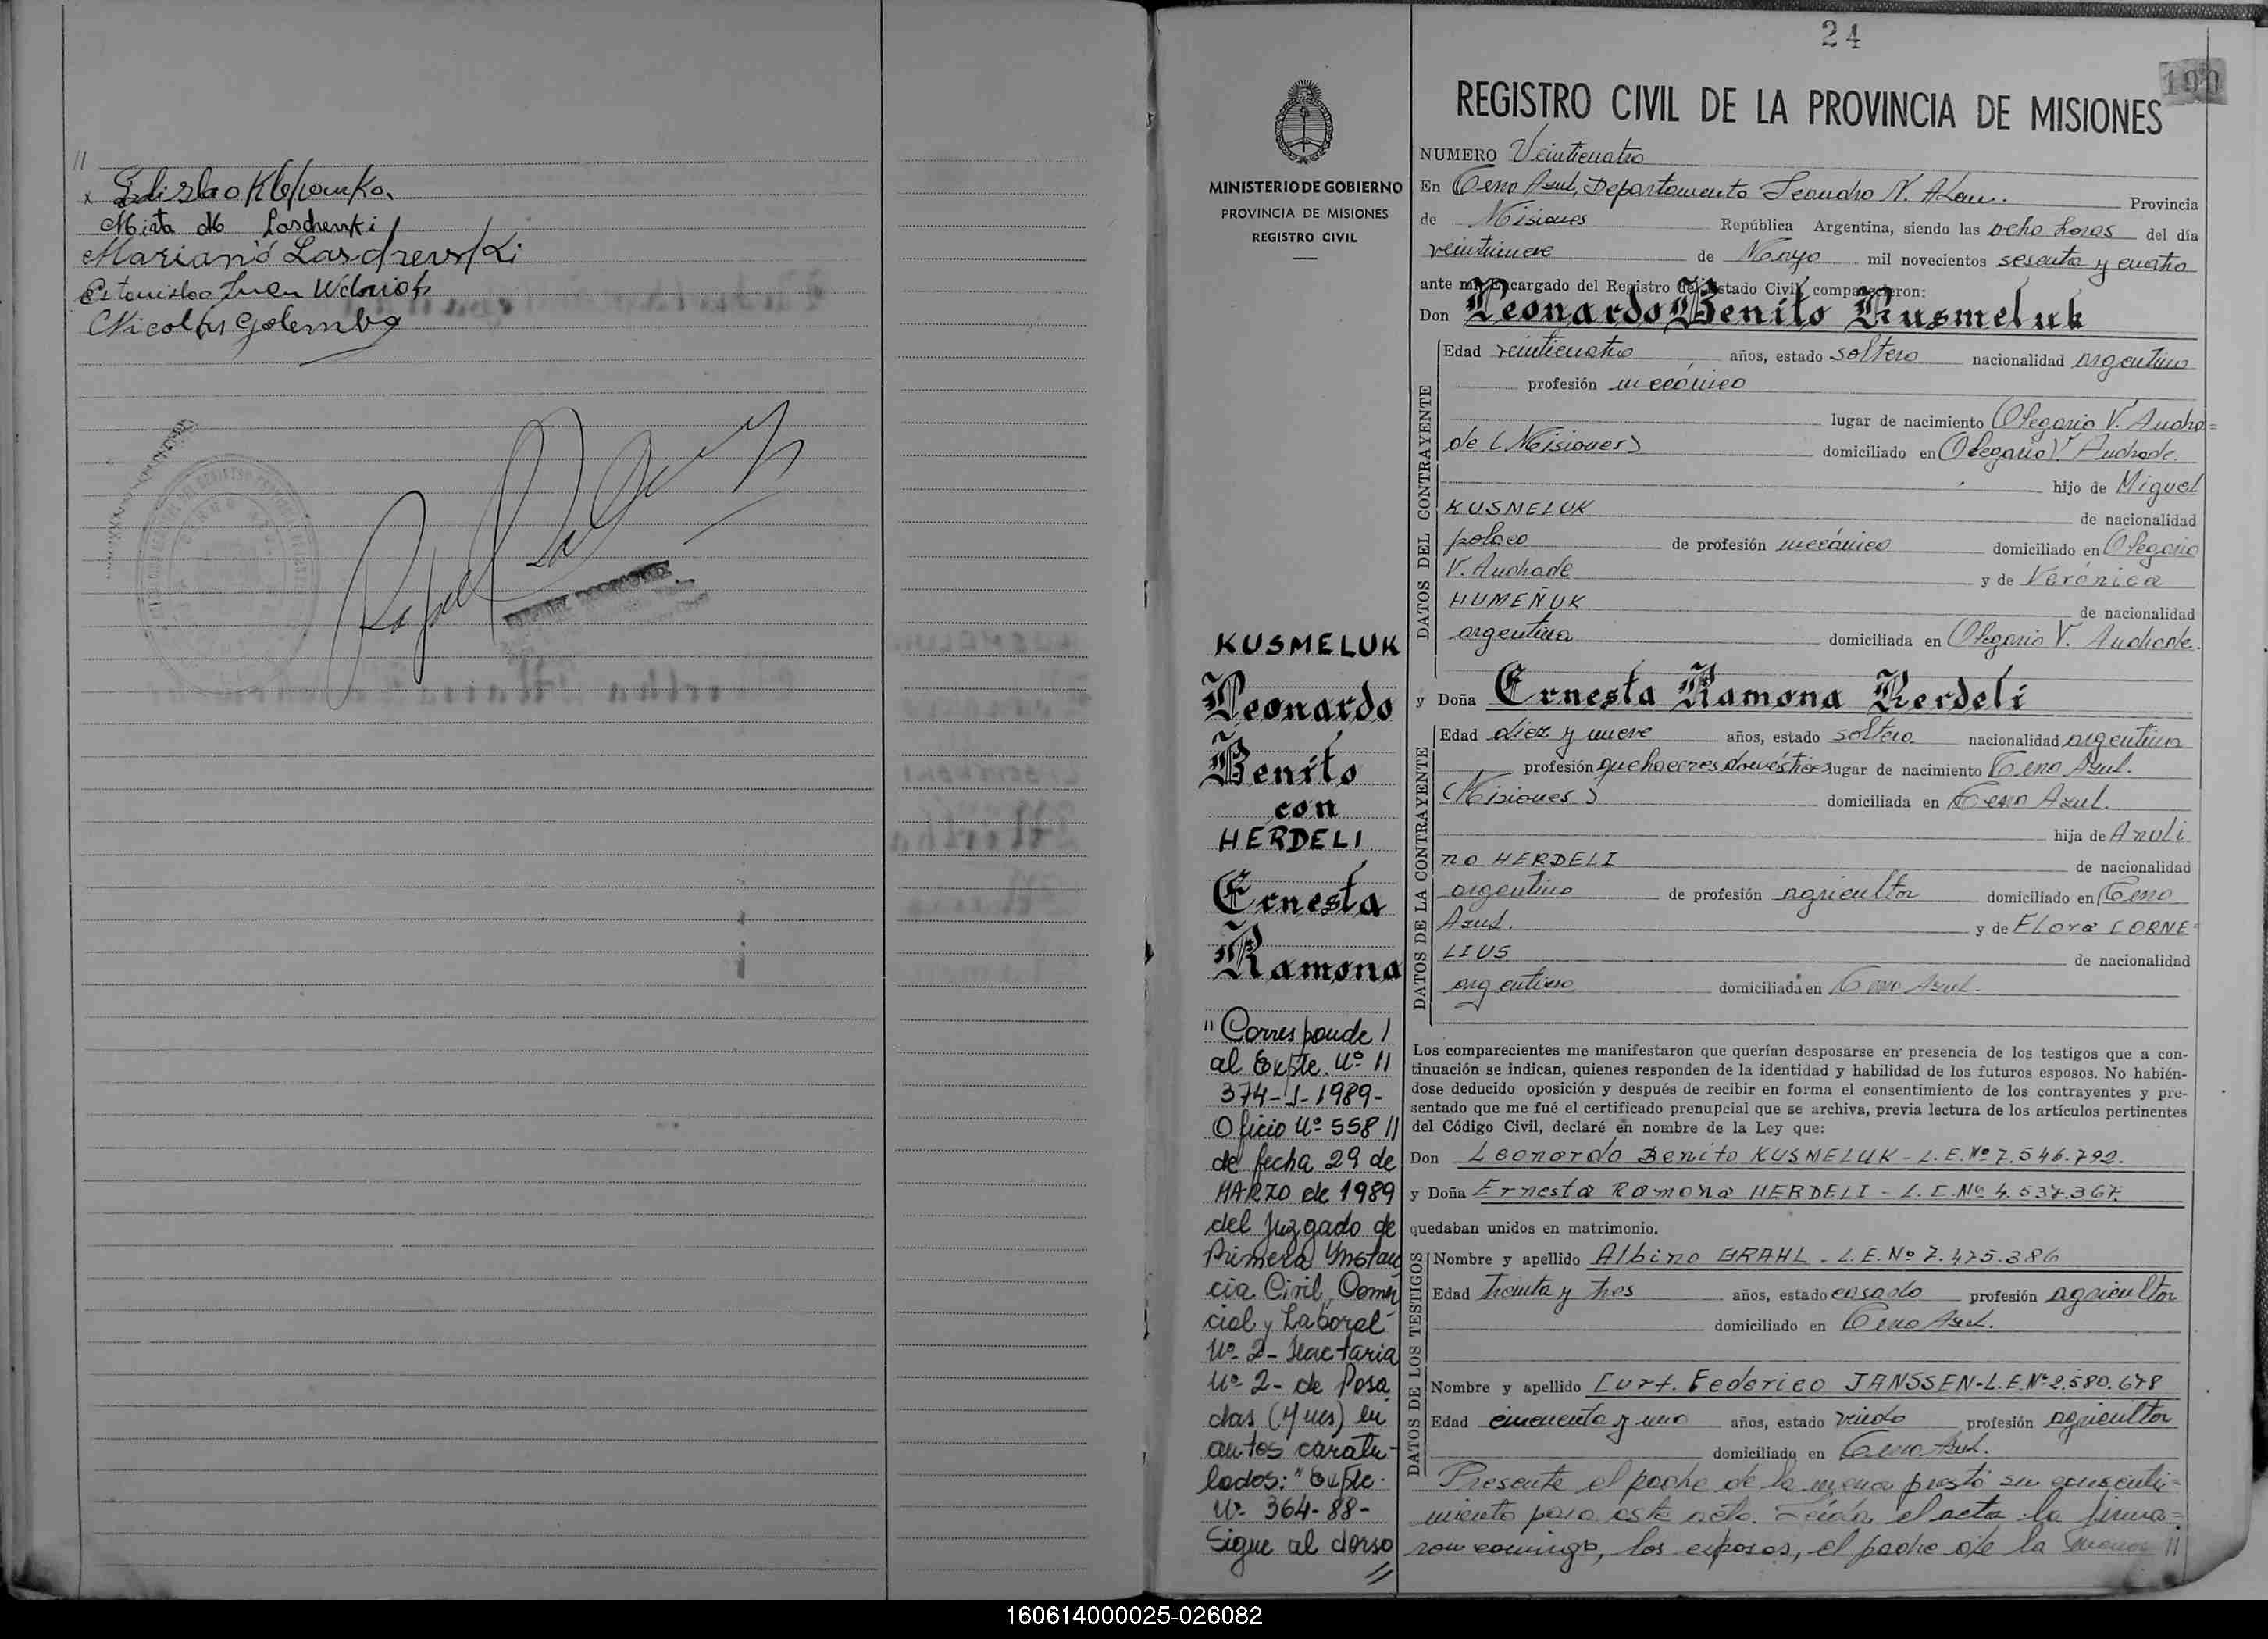 //
Ladislao Klekonka
Mirta de Laschewski
Mariano Laschewski
Estanislao Juan
Nicolas Golemba
24
190
REGISTRO CIVIL DE LA PROVINCIA DE MISIONES
MINISTERIO DE GOBIERNO
PROVINCIA DE MISIONES
REGISTRO CIVIL
NUMERO Veinticuatro
En Cerro Azul, Departamento Leandro N. Alem. Provincia
de Misiones República Argentina, siendo las ocho horas del día
veintinueve de Mayo mil novecientos sesenta y cuatro
ante mí, Encargado del Registro del Estado Civil, comparecieron:
Don Leonardo Benito Kusmeluk
DATOS DEL CONTRAYENTE
Edad veinticuatro años, estado soltero nacionalidad argentino
profesión mecánico
lugar de nacimiento Olegario V. Andra=
de (Misiones) domiciliado en Olegario V. Andrade.
hijo de Miguel
KUSMELUK de nacionalidad
polaco de profesión mecánico domiciliado en Olegario
V. Andrade y de Verónica
HUMEÑUK de nacionalidad
argentina domiciliada en Olegario V. Andrade.
y Doña Ernesta Ramona Herdeli
DATOS DE LA CONTRAYENTE
Edad diez y nueve años, estado soltera nacionalidad argentina
profesión quehaceres domésticos lugar de nacimiento Cerro Azul.
(Misiones) domiciliada en Cerro Azul.
hija de Anuli
no HERDELI de nacionalidad
argentino de profesión agricultor domiciliado en Cerro
Azul. y de Flora CORNE=
LIUS de nacionalidad
argentina domiciliada en Cerro Azul.
Los comparecientes me manifestaron que querían desposarse en presencia de los testigos que a con-
tinuación se indican, quienes responden de la identidad y habilidad de los futuros esposos. No habién-
dose deducido oposición y después de recibir en forma el consentimiento de los contrayentes y pre-
sentado que me fué el certificado prenupcial que se archiva, previa lectura de los artículos pertinentes
del Código Civil, declaré en nombre de la Ley que:
Don Leonardo Benito KUSMELUK - L.E. Nº 7.546.792.
y Doña Ernesta Ramona HERDELI - L.C. Nº 4.537.367.
quedaban unidos en matrimonio.
DATOS DE LOS TESTIGOS
Nombre y apellido Albino BRAHL - L.E. Nº 7.475.386
Edad treinta y tres años, estado casado profesión agricultor
domiciliado en Cerro Azul.
Nombre y apellido Curt Federico JANSSEN - L.E. Nº 2.580.678
Edad cincuenta y uno años, estado viudo profesión agricultor
domiciliado en Cerro Azul.
Presente el padre de la menor prestó su consenti=
miento para este acto. Leída el acta la firma=
ron conmigo, los esposos, el padre de la menor //
KUSMELUK
Leonardo
Benito
con
HERDELI
Ernesta
Ramona
"Corresponde /
al Expte. Nº //
374-J-1989-
Oficio Nº 558 //
de fecha 29 de
MARZO de 1989
del Juzgado de
Primera Instan
cia Civil, Comer
cial y Laboral
Nº 2- Secretaria
Nº 2- de Posa
das (Mnes) en
autos caratu-
lados: "Expte.
Nº 364-88-
Sigue al dorso
//
160614000025-026082